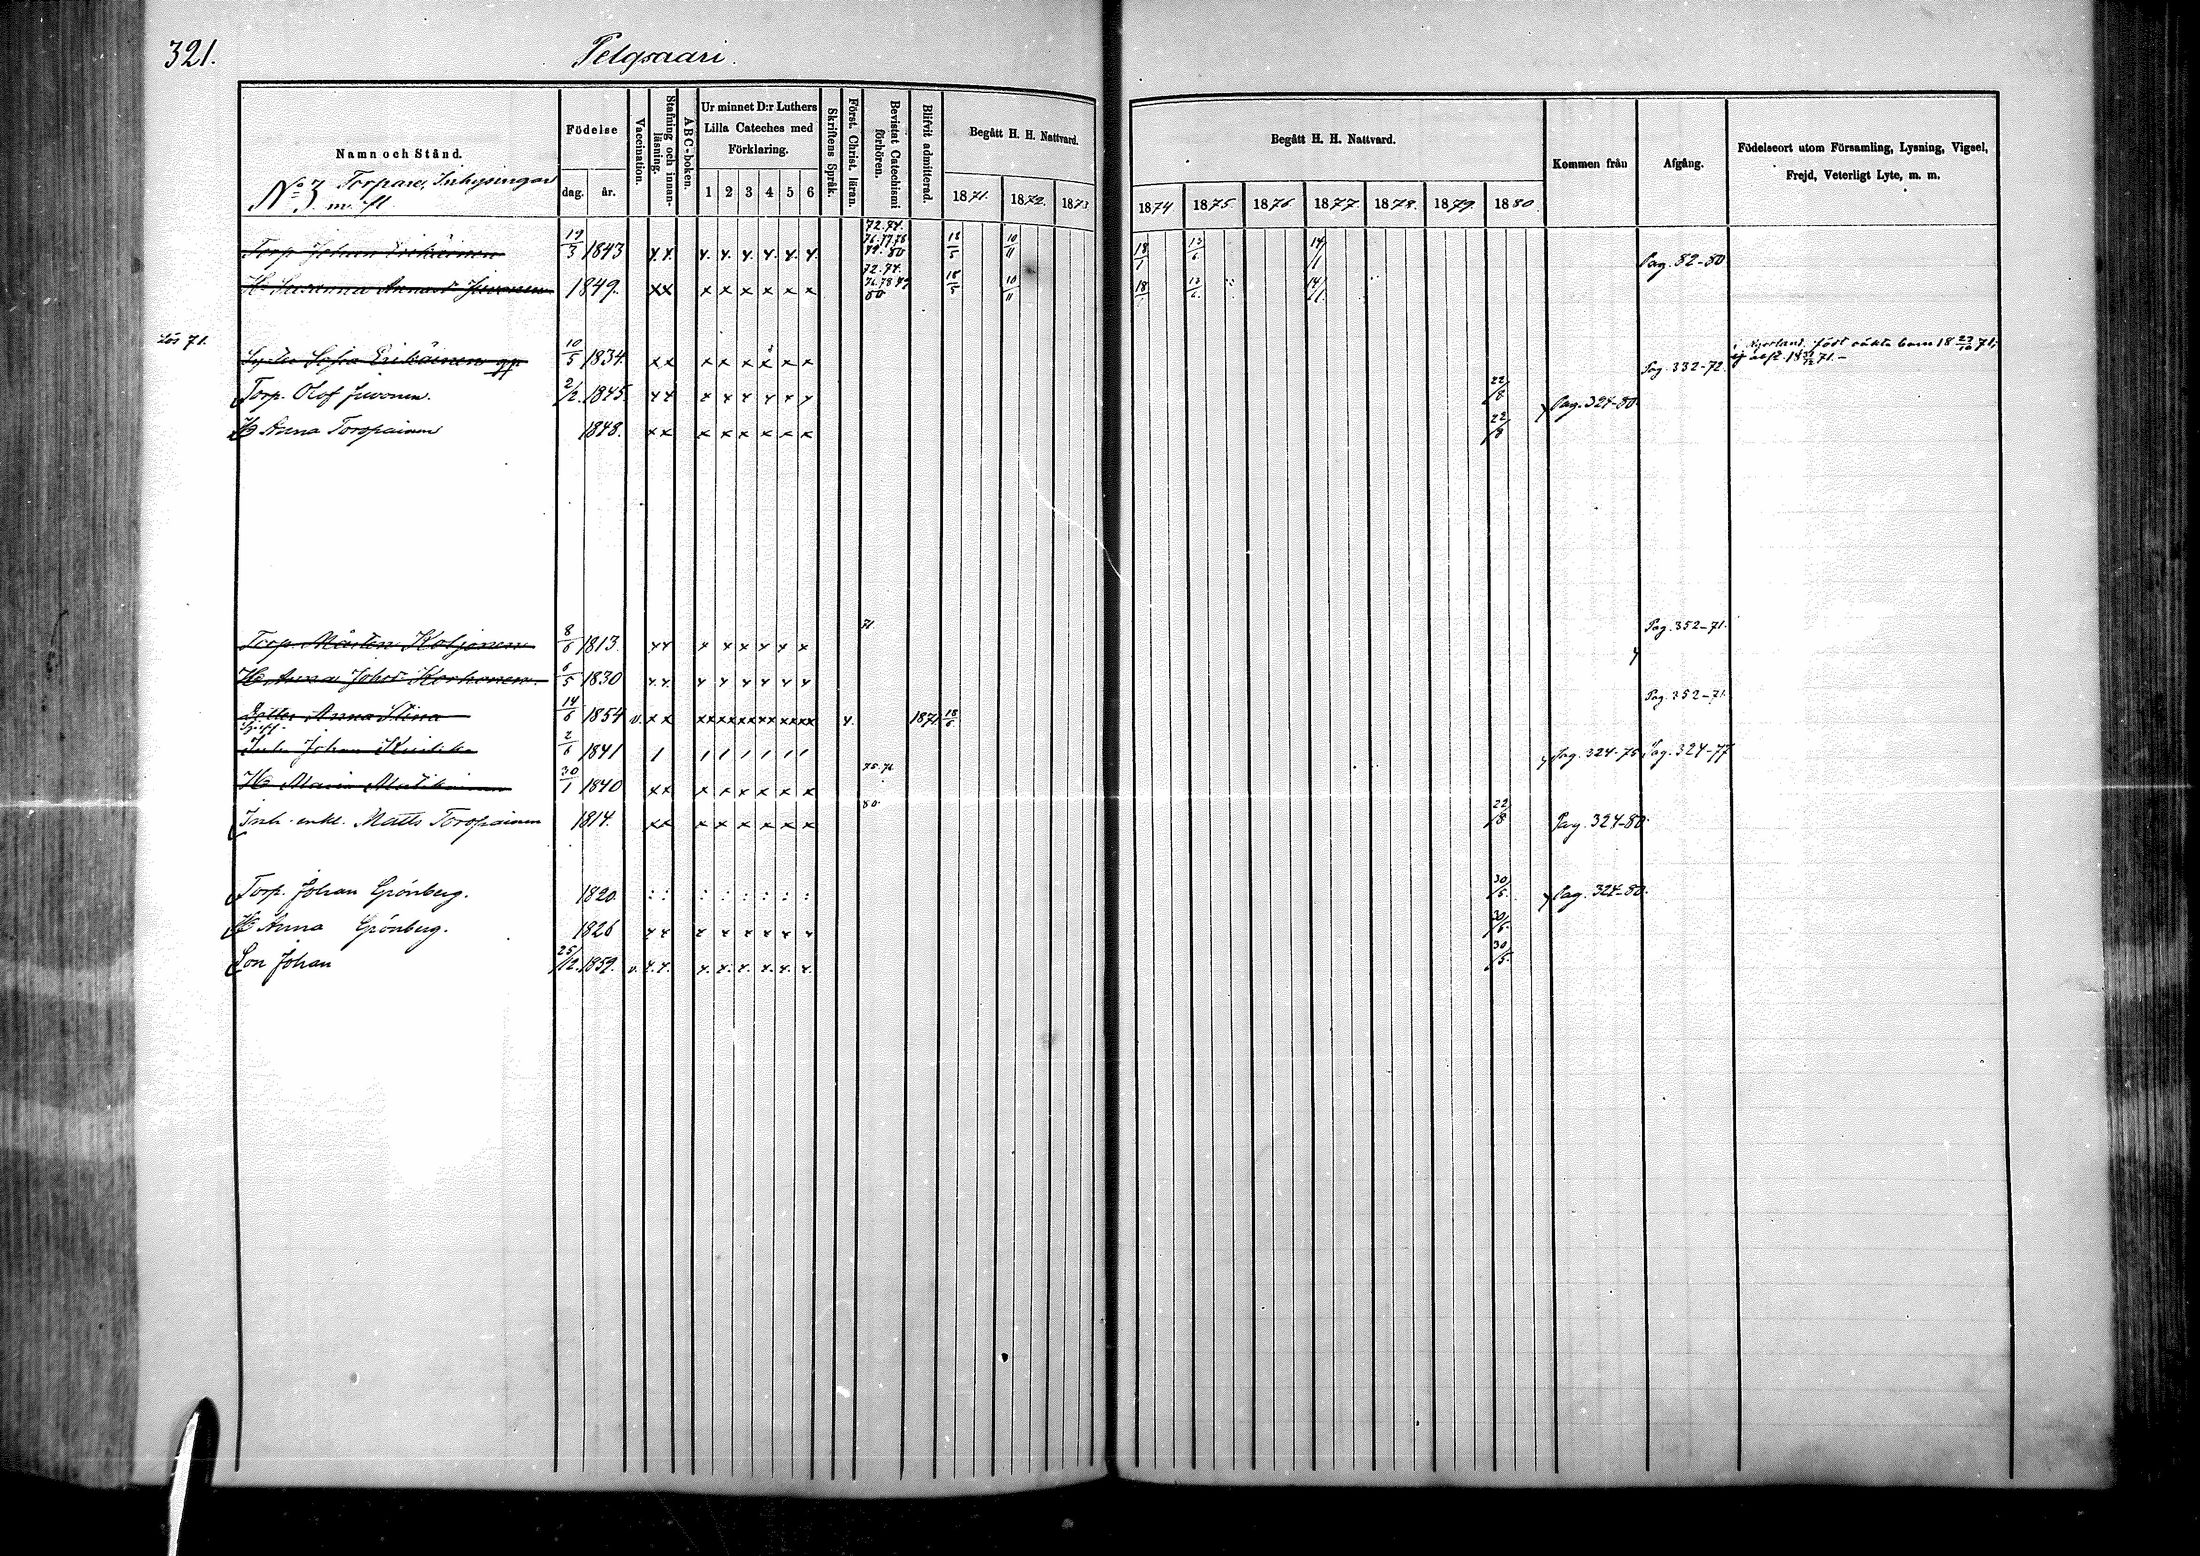 321.
Pelgsaari.
Namn och Stånd.
No 3. Torpare, Inhysingar
m. fl.
Födelse
dag. år.
Vaccination.
Stafning och innan-
läsning.
ABC-boken.
Ur minnet D:r Luthers
Lilla Cateches med
Förklaring.
1 2 3 4 5 6
Skriftens Språk.
Först. Christ. läran.
Bevistat Catechismi
förhören.
Blifvit admitterad.
Begått H. H. Nattvard.
1871. 1872. 1873
Begått H. H. Nattvard.
1874 1875 1876 1877 1878 1879 1880
Kommen från
Afgång.
Födelseort utom Församling, Lysning, Vigsel,
Frejd, Veterligt Lyte, m. m.
Torp. Johan 19/3 1843 72.74. 76.77.78 79.80 18/5 10/11 18/1 13/6 14/1 Pag. 82-80
Hu Susanna Juvonen 1849. 72.74. 76.78 79 80 18/5 10/11 18/1 13/6 14/1
71.
Sofia 10/5 1834. Pag. 332-72. född oäkta barn 18 23/10 71,
Torp. Olof Juvonen. 2/2. 1845. 22/8 Pag. 324-80.
H Anna Toropainen 1848. 22/8
Torp. Mårten Koljonen 8/6 1813. 71 Pag. 352-71.
Hu Anna Johsdr Korhonen. 6/5 1830
Dotter Anna Stina 14/6 1854 v. 1871. 18/6 Pag. 352-71.
Inh. Johan 2/6 1841 Pag. 324-75 Pag. 324-77
Hu Maria 30/1 1840 75.76
Inh. enkl. Matts Toropainen 1814. 80. 22/8 Pag. 324-80.
Torp. Johan Grönberg. 1820. 30/5. Pag. 324-80.
H Anna Grönberg. 1826 30/5.
Son Johan 25/12. 1859. v. 30/5.